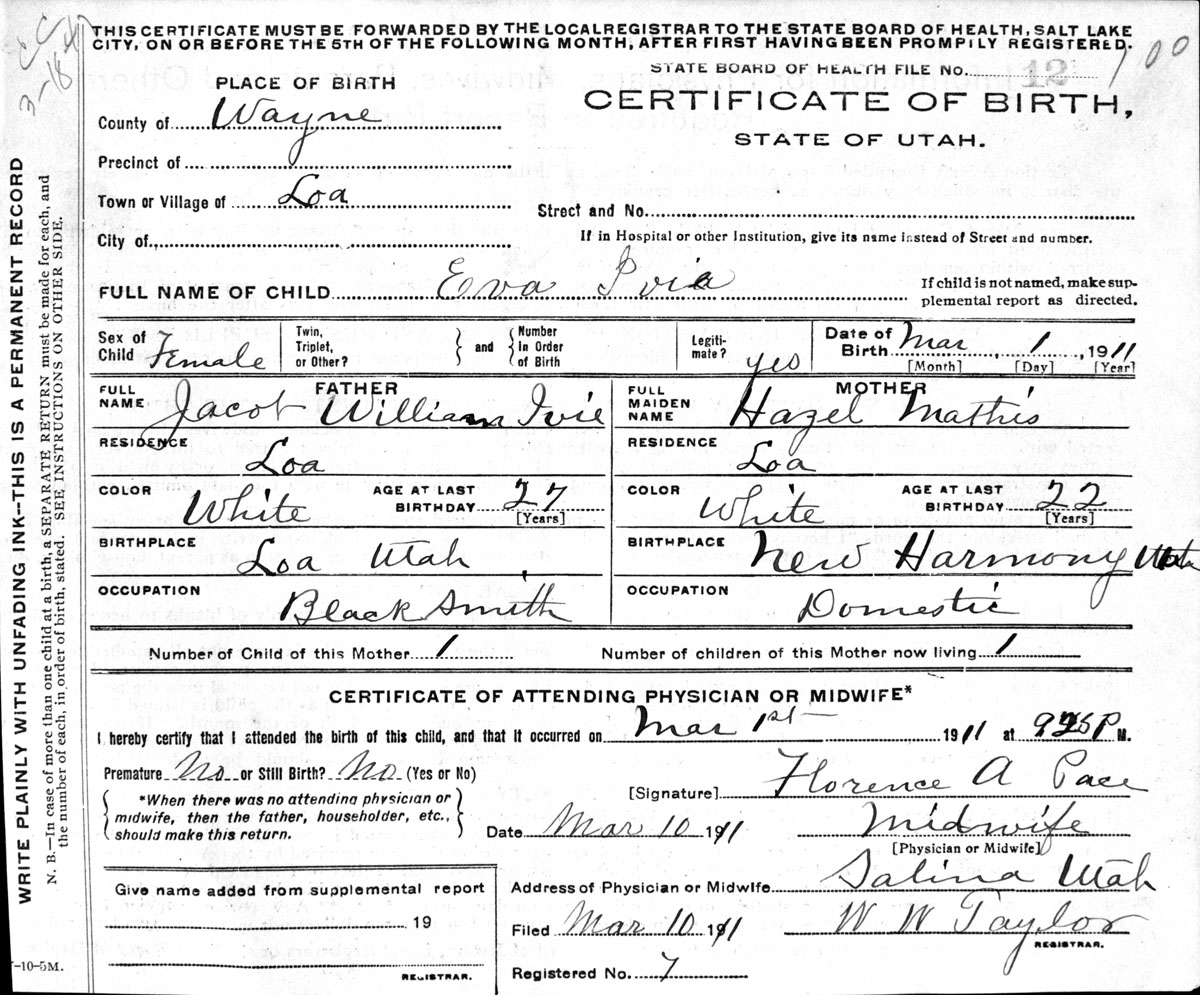 THIS CERTIFICATE MUST BE FORWARDED BY THE LOCALREGISTRAR TO THE STATE BOARD OF HEALTH, SALT LAKE
CITY, ON OR BEFORE THE 5TH OF THE FOLLOWING MONTH, AFTER FIRST HAVING BEEN PROMPILY REGISTERED.
STATE BOARD OF HEALTH FILE NO. 12 100
PLACE OF BIRTH
CERTIFICATE OF BIRTH,
STATE OF UTAH.
County of Wayne
Precinct of
Town or Village of Loa
Street and No.
City of.,
If in Hospital or other Institution, give its name instead of Street and number.
FULL NAME OF CHILD Eva Ivie
If child is not named, make sup-
plemental report as directed.
Sex of Child Female
Twin, Triplet, or Other? and Number In Order of Birth
Legiti- mate? yes
Date of Birth Mar 1, 1911
[Month] [Day] [Year]
FATHER
FULL NAME Jacob William Ivie
MOTHER
FULL MAIDEN NAME Hazel Mathis
RESIDENCE Loa
RESIDENCE Loa
COLOR White AGE AT LAST BIRTHDAY 27 [Years]
COLOR White AGE AT LAST BIRTHDAY 22 [Years]
BIRTHPLACE Loa Utah
BIRTHPLACE New Harmony Utah
OCCUPATION Black Smith
OCCUPATION Domestic
Number of Child of this Mother 1
Number of children of this Mother now living 1
CERTIFICATE OF ATTENDING PHYSICIAN OR MIDWIFE*
I hereby certify that I attended the birth of this child, and that it occurred on Mar 1st 1911 at 925 P M.
Premature No or Still Birth? No (Yes or No)
[Signature] Florence A Pace
*When there was no attending physician or
midwife, then the father, householder, etc.,
should make this return.
Date Mar 10 1911 Midwife
[Physician or Midwife]
Give name added from supplemental report
19
REGISTRAR.
Address of Physician or Midwife Salina Utah
Filed Mar 10 1911 W W Taylor
REGISTRAR.
Registered No. 7
-10-5M.
WRITE PLAINLY WITH UNFADING INK--THIS IS A PERMANENT RECORD
N. B.—In case of more than one child at a birth, a SEPARATE RETURN must be made for each, and
the number of each, in order of birth, stated. SEE INSTRUCTIONS ON OTHER SIDE.